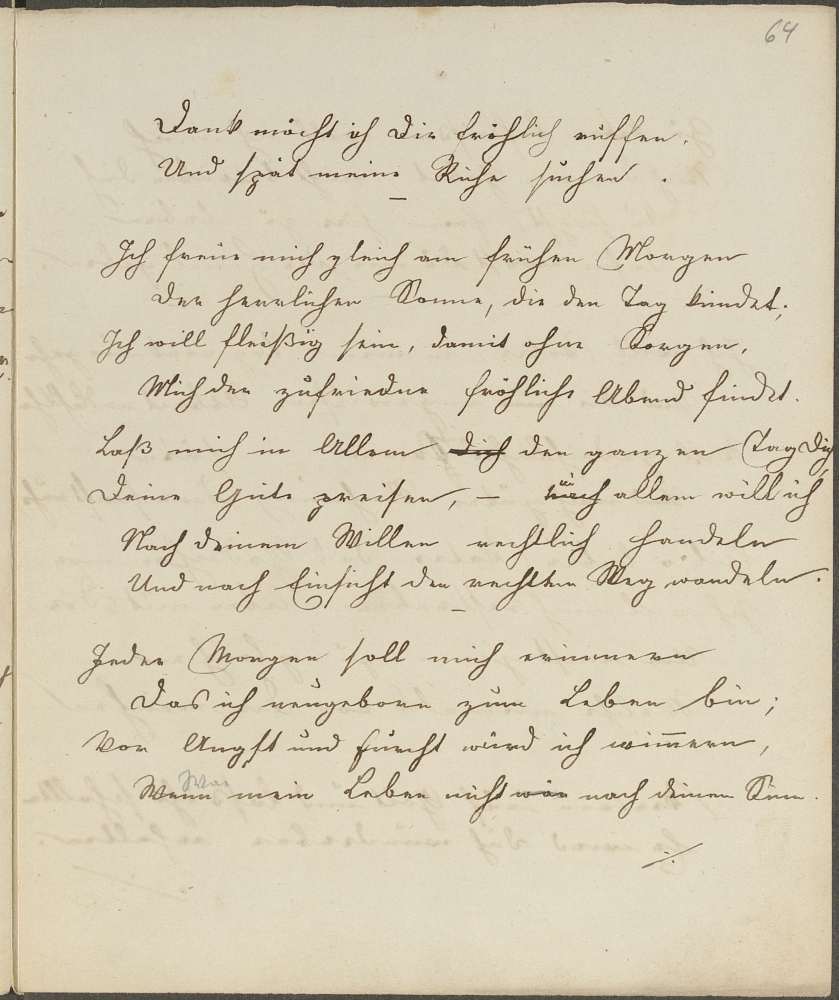 64
Dank möcht ich Dir fröhlich ruffen.
Und spät meine Ruhe suchen.
Ich freue mich gleich am frühen Morgen
Der herrlichen Sonne, die den Tag kündet;
Ich will fleißig sein, damit ohne Sorgen,
Mich der zufriedne fröhliche Abend findet.
Laß mich in Allem dich den ganzen Tag Dich
Deine Güte preisen, – nach allem will ich
Nach deinem Willen rechtlich handeln
Und nach Einsicht den rechten Weg wandeln.
Jeder Morgen soll mich erinnern
Das ich neugeborn zum Leben bin;
Vor Angst und Furcht würd ich wimmern,
Wenn mein Leben nicht wär nach deinen Sinn.